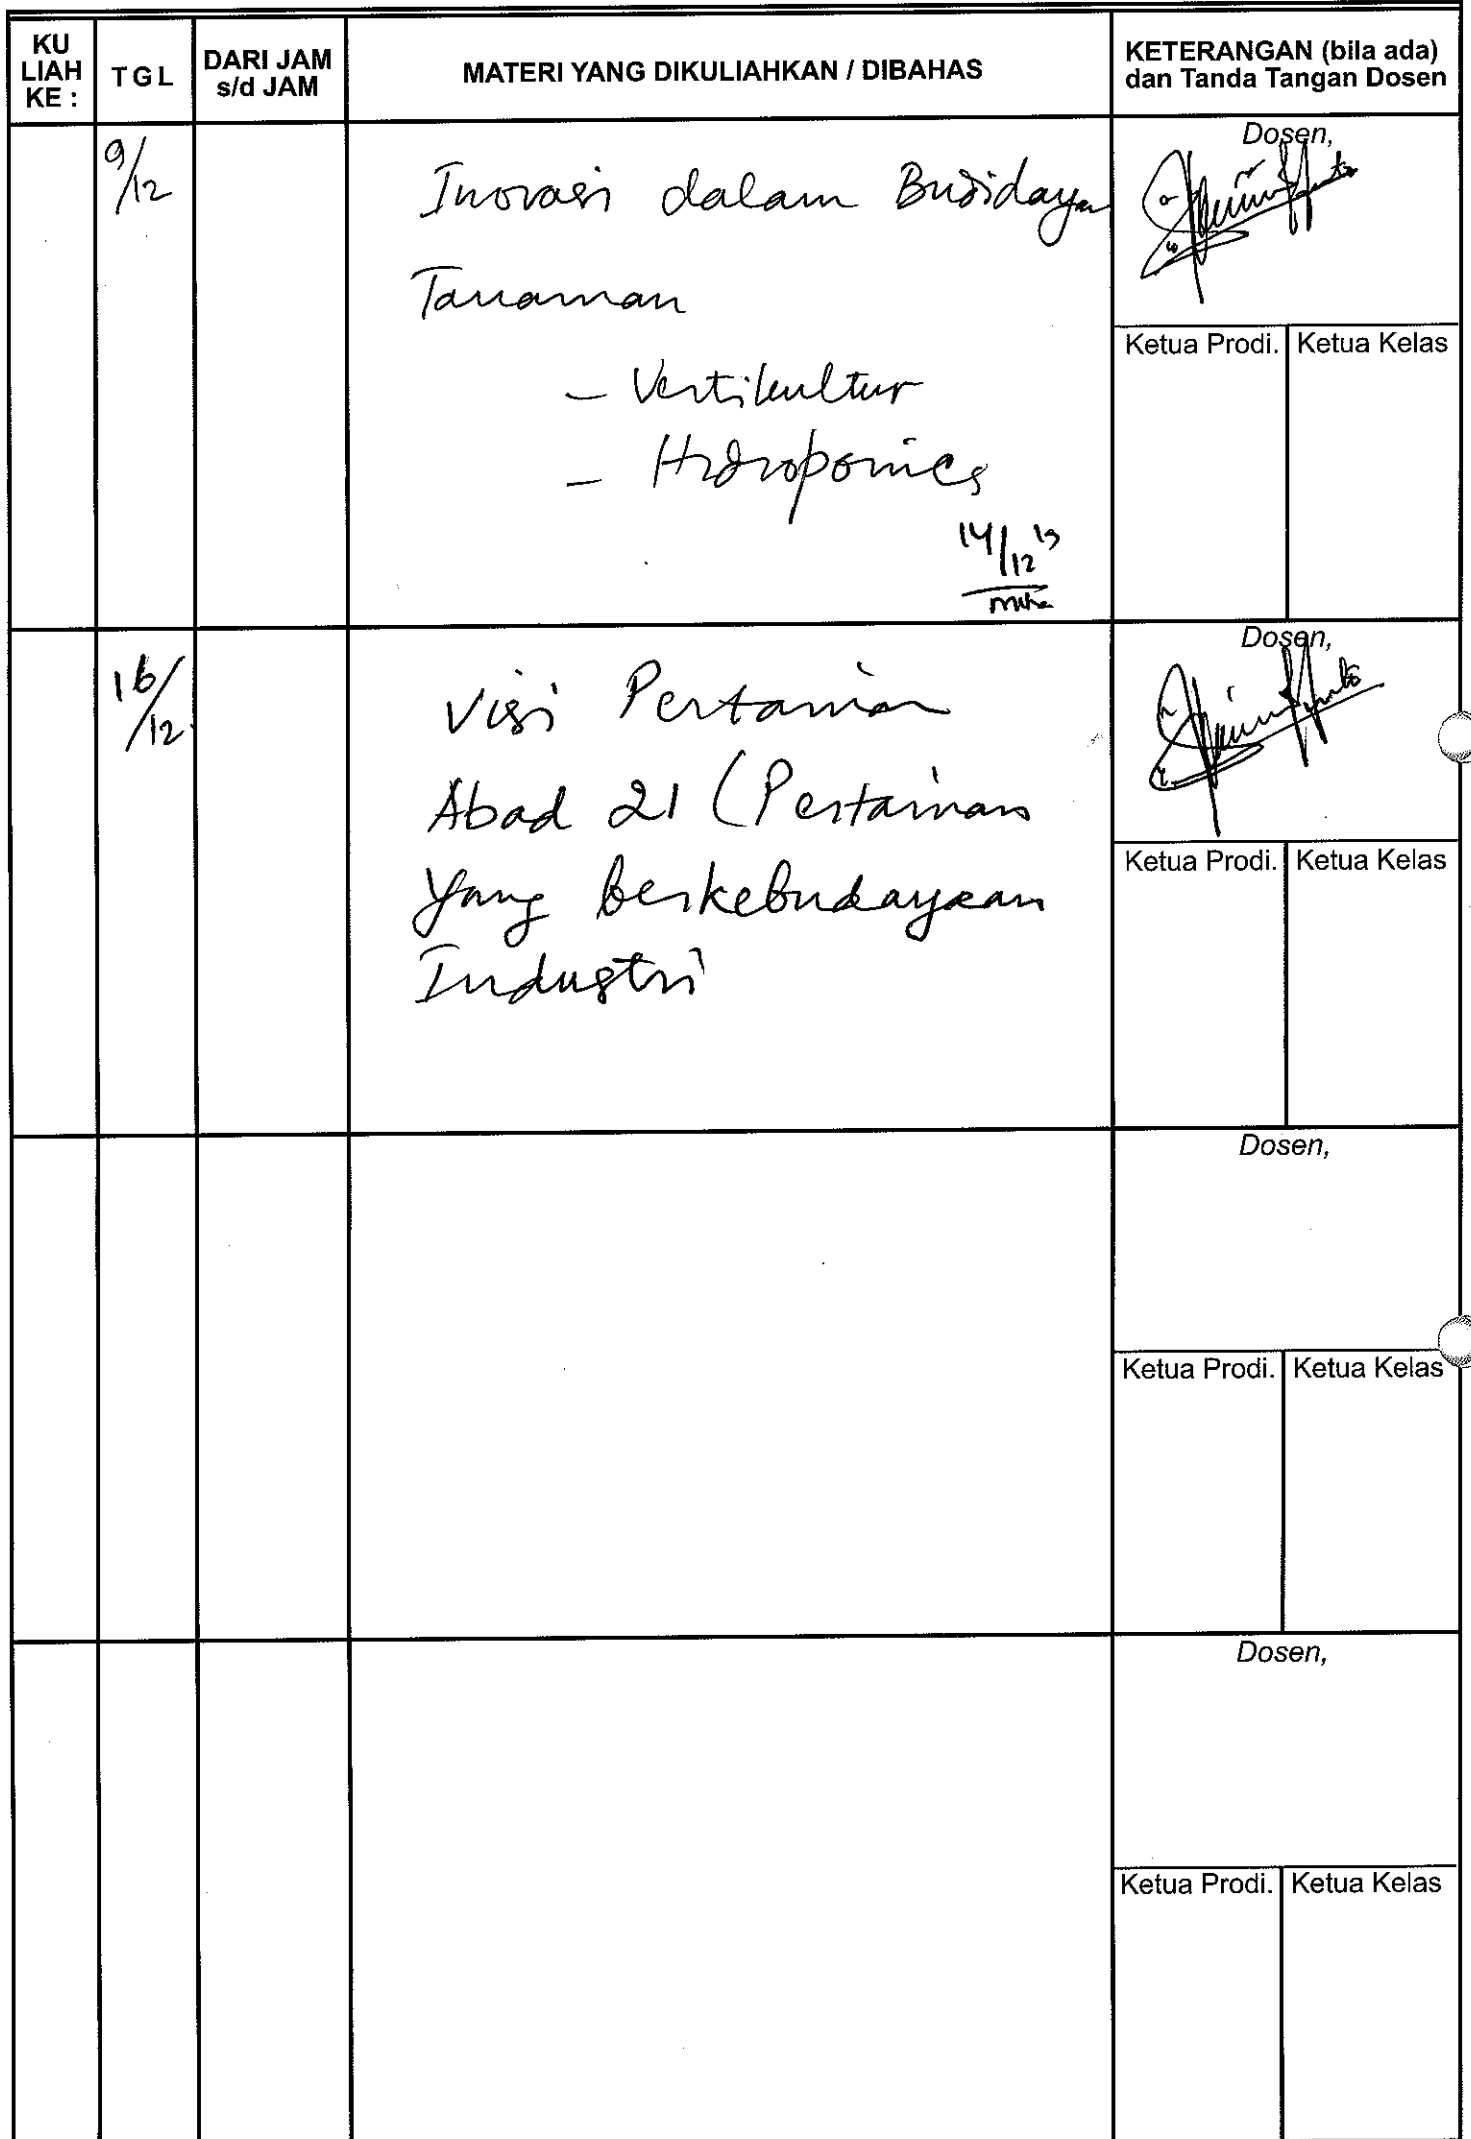 KU LIAH KE :
TGL
DARI JAM s/d JAM
MATERI YANG DIKULIAHKAN / DIBAHAS
KETERANGAN (bila ada) dan Tanda Tangan Dosen
9/12
Inovasi dalam Budidaya
Tanaman
- Vertikultur
- Hidroponics
14/12
Dosen,
Ketua Prodi.
Ketua Kelas
16/12
Visi Pertanian
Abad 21 (Pertanian
Yang berkebudayaan
Industri
Dosen,
Ketua Prodi.
Ketua Kelas
Dosen,
Ketua Prodi.
Ketua Kelas
Dosen,
Ketua Prodi.
Ketua Kelas